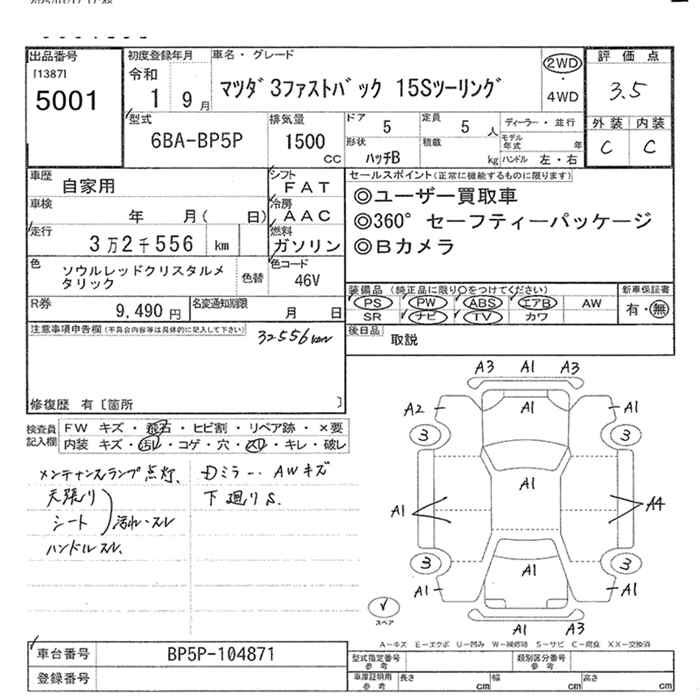 出品番号
[1387]
5001
初度登録年月
令和
1 9月
車名・グレード
マツダ3ファストバック 15Sツーリング
2WD
4WD
評価点
3.5
外装 内装
C C
型式
6BA-BP5P
排気量
1500
CC
ドア 5
形状
ハッチB
定員 5 人
積載 kg
ディーラー・並行
モデル年式 年
ハンドル 左・右
車歴
自家用
シフト
FAT
車検
年 月( 日)
冷房
AAC
走行
3万2千556 km
燃料
ガソリン
色
ソウルレッドクリスタルメタリック
色替
色コード
46V
R券
9,490 円
名変通知期限
月 日
セールスポイント(正常に機能するものに限ります)
◎ユーザー買取車
◎360° セーフティーパッケージ
◎Bカメラ
装備品 (純正品に限り〇をつけてください)
PS PW ABS エアB AW
SR ナビ TV カワ
新車保証書
有・無
後日品
取説
注意事項申告欄(不具合内容等は具体的に記入して下さい)
32556km
修復歴 有[箇所 ]
検査員記入欄
FW キズ・飛石・ヒビ割・リペア跡・×要
内装 キズ・汚レ・コゲ・穴・スレ・キレ・破レ
メンテナンスランプ点灯、
天張り
シート
汚れ・スレ
ハンドルスレ、
Dミラー、AWキズ
下廻りS、
A3 A1 A3
A2 A1 A1
3 3
A1
A1 A4
3 3
A1 A1 A1
A1 A3
スペア
A-キズ E-エクボ U-凹み W-補修跡 S-サビ C-腐食 XX-交換済
車台番号
BP5P-104871
登録番号
型式指定番号
参考
類別区分番号
参考
車庫証明用
参考
長さ cm
幅 cm
高さ cm